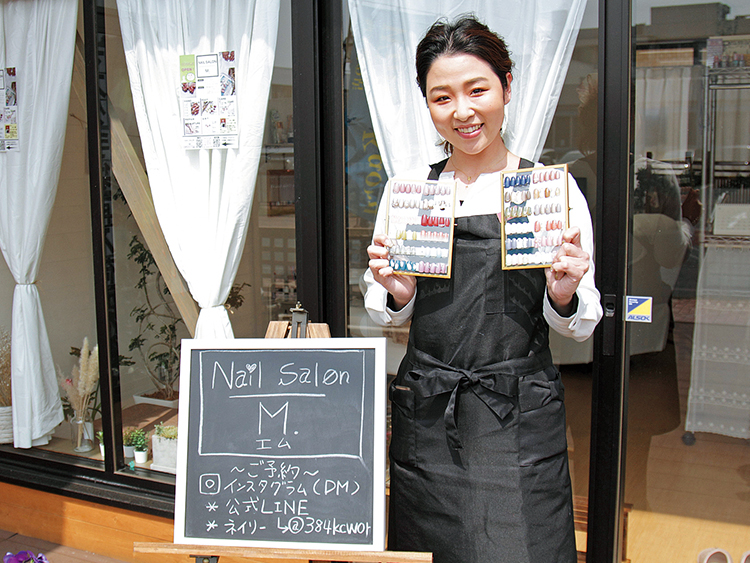 NAIL SALON
M
Nail Salon
M.
エム
～ご予約～
インスタグラム(DM)
* 公式LINE
* ネイリー ↳@384kcwor
ALSOK